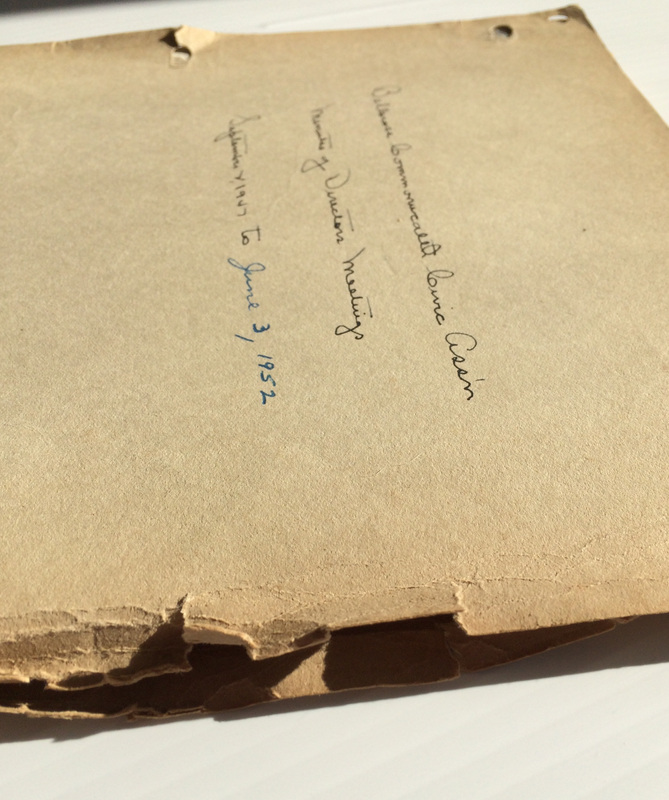 Bellevue Commonwealth Civic Ass'n
Minutes of Directors Meetings
September 1947 to June 3, 1952